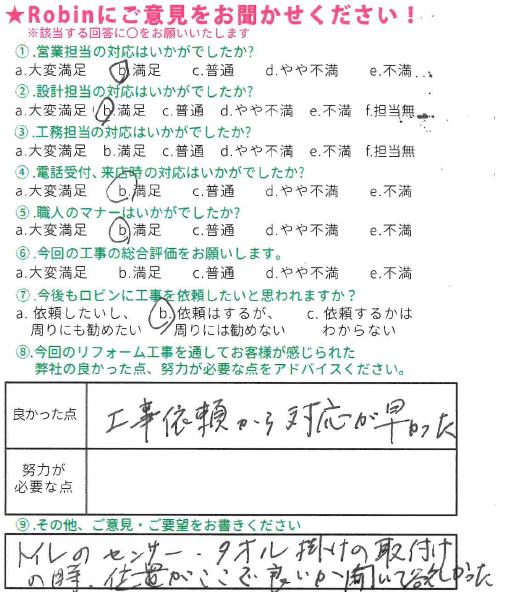 ★Robinにご意見をお聞かせください！
※該当する回答に〇をお願いいたします
①.営業担当の対応はいかがでしたか?
a.大変満足 b.満足 c.普通 d.やや不満 e.不満
②.設計担当の対応はいかがでしたか?
a.大変満足 b.満足 c.普通 d.やや不満 e.不満 f.担当無
③.工務担当の対応はいかがでしたか?
a.大変満足 b.満足 c.普通 d.やや不満 e.不満 f.担当無
④.電話受付、来店時の対応はいかがでしたか?
a.大変満足 b.満足 c.普通 d.やや不満 e.不満
⑤.職人のマナーはいかがでしたか?
a.大変満足 b.満足 c.普通 d.やや不満 e.不満
⑥.今回の工事の総合評価をお願いします。
a.大変満足 b.満足 c.普通 d.やや不満 e.不満
⑦.今後もロビンに工事を依頼したいと思われますか？
a. 依頼したいし、 b. 依頼はするが、 c. 依頼するかは
周りにも勧めたい 周りには勧めない わからない
⑧.今回のリフォーム工事を通してお客様が感じられた
弊社の良かった点、努力が必要な点をアドバイスください。
良かった点 工事依頼から対応が早かった
努力が
必要な点
⑨.その他、ご意見・ご要望をお書きください
トイレのセンサー・タオル掛けの取付け
の時、位置がここで良いか聞いて欲しかった